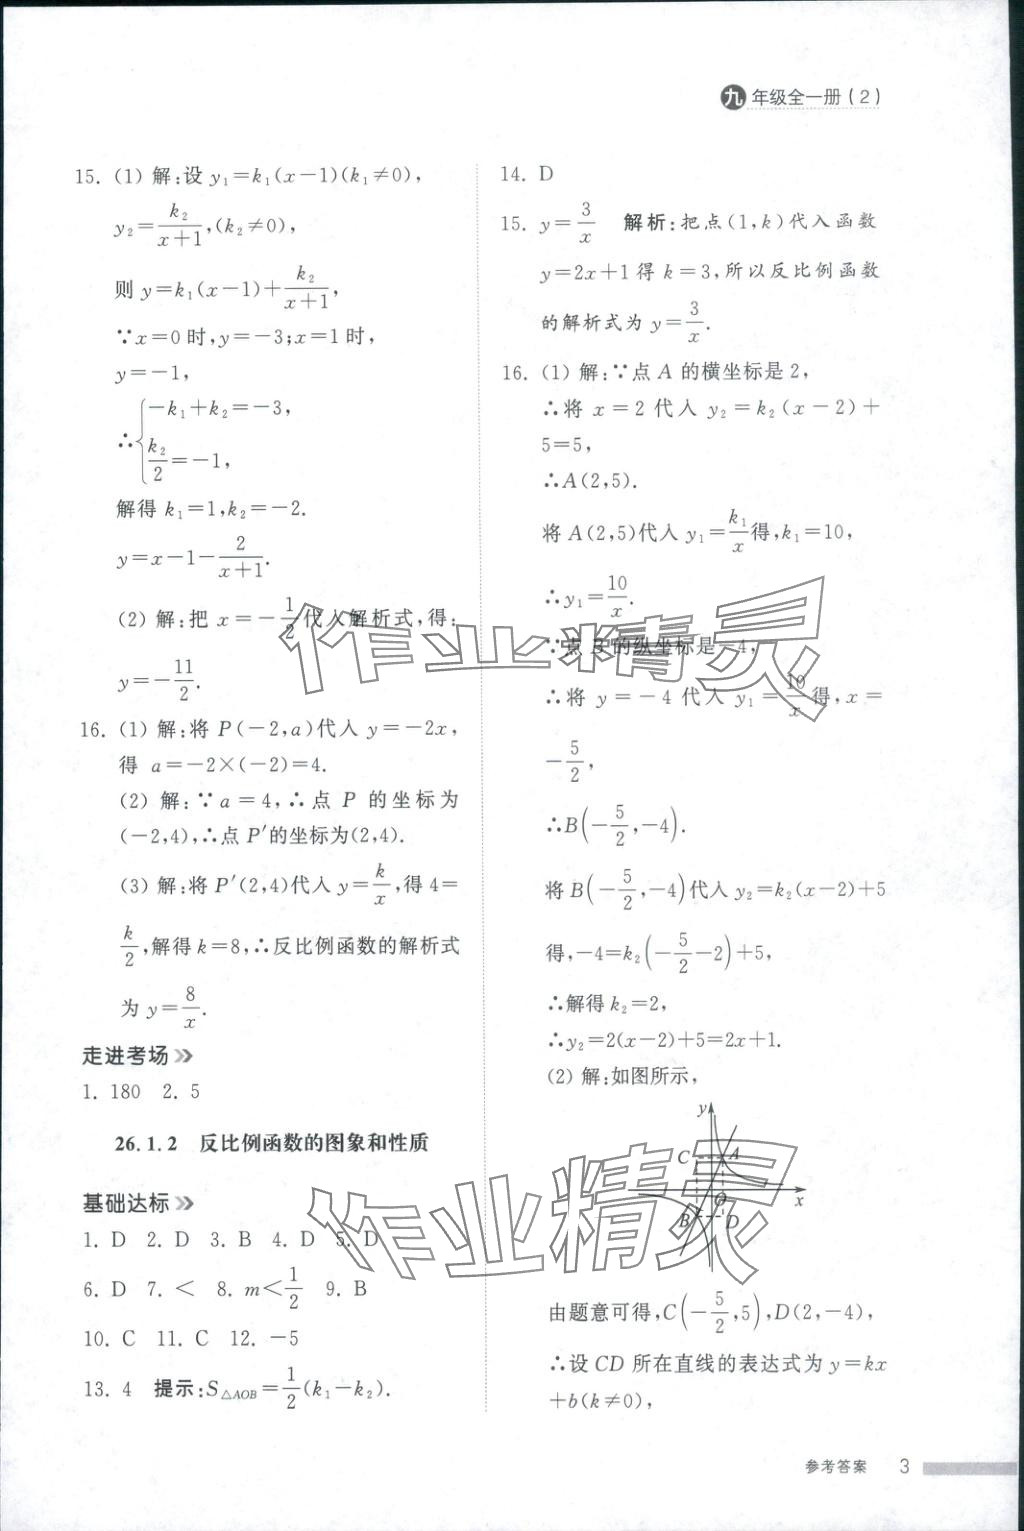 九年级全一册(2)
15. (1) 解:设 y₁=k₁(x-1)(k₁≠0),
y₂=k₂/(x+1),(k₂≠0),
则 y=k₁(x-1)+k₂/(x+1),
∵x=0 时,y=-3;x=1 时,
y=-1,
∴{-k₁+k₂=-3,
k₂/2=-1,
解得 k₁=1,k₂=-2.
y=x-1-2/(x+1).
(2) 解:把 x=-1/2代入解析式,得:
y=-11/2.
16. (1) 解:将 P(-2,a)代入 y=-2x,
得 a=-2×(-2)=4.
(2) 解:∵a=4,∴点 P 的坐标为
(-2,4),∴点 P′的坐标为(2,4).
(3) 解:将 P′(2,4)代入 y=k/x,得 4=
k/2,解得 k=8,∴反比例函数的解析式
为 y=8/x.
走进考场
1. 180 2. 5
26.1.2 反比例函数的图象和性质
基础达标
1. D 2. D 3. B 4. D 5. D
6. D 7. < 8. m<1/2 9. B
10. C 11. C 12. -5
13. 4 提示:S△AOB=1/2(k₁-k₂).
14. D
15. y=3/x 解析:把点(1,k)代入函数
y=2x+1得 k=3,所以反比例函数
的解析式为 y=3/x.
16. (1) 解:∵点 A 的横坐标是 2,
∴将 x=2 代入 y₂=k₂(x-2)+
5=5,
∴A(2,5).
将 A(2,5)代入 y₁=k₁/x得,k₁=10,
∴y₁=10/x.
∵点 B 的纵坐标是-4,
∴将 y=-4 代入 y₁=10/x得,x=
-5/2,
∴B(-5/2,-4).
将 B(-5/2,-4)代入 y₂=k₂(x-2)+5
得,-4=k₂(-5/2-2)+5,
∴解得 k₂=2,
∴y₂=2(x-2)+5=2x+1.
(2) 解:如图所示,
y
C A
O x
B D
由题意可得,C(-5/2,5),D(2,-4),
∴设 CD 所在直线的表达式为 y=kx
+b(k≠0),
参考答案 3
作业精灵
作业精灵